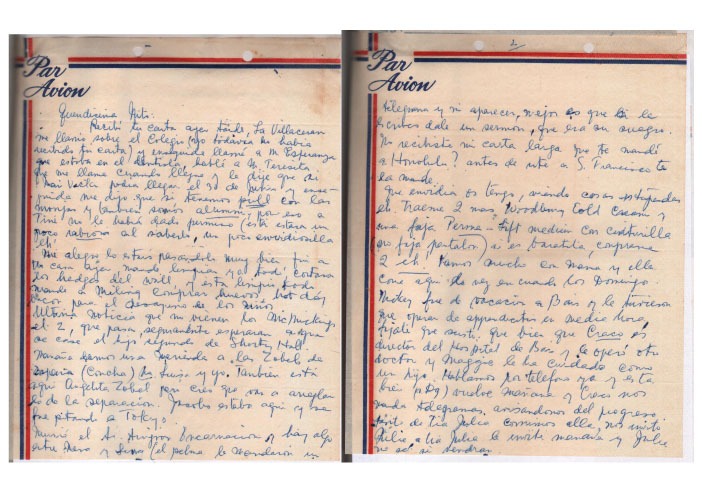 Par
Avion
Queridisima Nito:
Recibi tu carta ayer tarde, La Villaceran
me llamó sobre el Colegio (yo todavia no habia
recibido tu carta) y enseguida llamé a M. Esperanza
que estaba en el dentista, hablé a M. Teresita
que me llame cuando llegue y le dije que si
Mai Vecta podia llegar el 30 de Junio y ense-
guida me dijo que si tenemos pull con las
monjas y tambien somos alumni, por eso a
Tine no le habia dado permiso (está estaba un
poco rabiosa al saberlo, un poco envidiosilla
eh!
Me alegro lo estais pasandolo muy bien, fui a
tu casa ayer mande limpiar ya todo, cortaron
los hedges del wall, y esta limpio todo
mande a comprar huevos, hot dog
bacon para el desayuno de los niños
Ultima noticia que no vienen los McMicking,
el 2, que pasa, seguramente esperaran a que
se case el hijo segundo de Shorty Hall.
Mañana damos una merienda a las Zobel de
España (Concha) Luisa y yo. Tambien está
aqui Angelita Zobel pero creo que van a arreglar
lo de la separacion. Jacobo estaba aqui y ha
ido pitando a Tokyo.
Murió el Sr. Encarnacion y hay algo
entre Mara y (el pelma lo mandaron un
2
Par
Avion
telegrama y ni aparecer, mejor es que si le
escribes dale un sermon, que era su suegro.
No recibiste mi carta larga que te mandé
a Honolulu? antes de irte a S. Francisco te
la mandé.
Que envidia os tengo, viendo cosas estupendas
eh. Traeme 2 mas Woodbury Cold Cream y
una faja Perma-Lift medium con cadturilla
(no faja pantalon) si es baratita, comprame
2 eh! Vamos mucho con mama y ella
come aqui de vez en cuando los Domingo.
Mickey fue de vacacion a Bais y le tuvieron
que operar de appendicitis en media hora,
fijate que susto, que bien que Craco es
director del Hospital de Bais y le operó otro
doctor y Maggie le ha cuidado como
un hijo. Hablamos por telefono ya y esta
bien (TDG) vuelve mañana y Craco nos
manda telegramas, avisandonos del progreso
Santi de Tia Julia comimos alla, nos invitó
Julia a Tia Julia le invité mañana y Julie
no se si vendran.